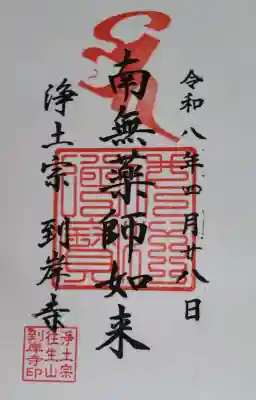 令和八年四月廿八日
南無薬師如来
浄土宗 到岸寺
佛法僧寳
浄土宗
往生山
到岸寺印